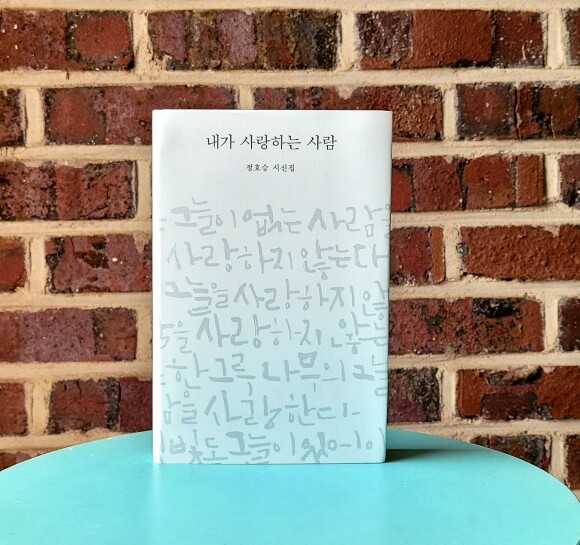 내가 사랑하는 사람
정호승 시선집
는 그늘이 없는 사람을
사랑하지 않는다
그늘을 사랑하지 않
을 사랑하지 않는
한 그루 나무의 그늘
람을 사랑한다
빛도 그늘이 있어야